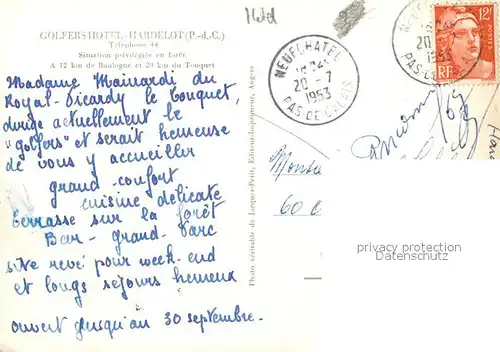 Hld
GOLFERS HOTEL - HARDELOT (P.-d.-C.)
Téléphone 44
Situation privilégiée en forêt
A 12 km de Boulogne et 20 km du Touquet
Madame Mainardi du
Royal-Picardy le Touquet,
dirige actuellement le
"golfers" et serait heureuse
de vous y accueillir
grand confort
cuisine délicate
terrasse sur la forêt
Bar - grand - Parc
site rêvé pour week-end
et longs séjours heureux
ouvert jusqu'au 30 septembre.
Photo véritable de Jacques-Petit, Editeur-Imprimeur, Angers
NEUFCHATEL
20 - 7
1953
PAS DE CALAIS
NEUFCHATEL
20
1953
PAS DE
12F
RF
60
privacy protection
watermark